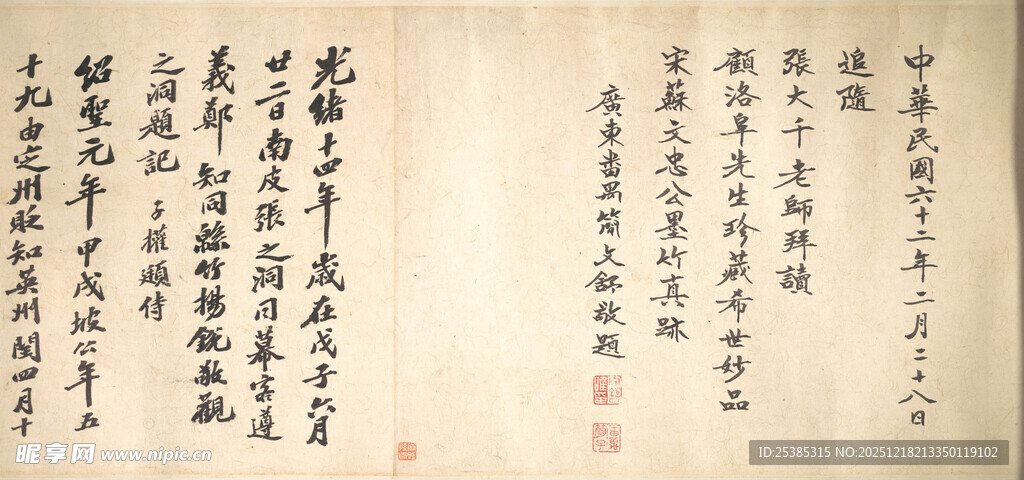 中華民國六十二年二月二十八日
追隨
張大千老師拜讀
顧洛阜先生珍藏希世妙品
宋蘇文忠公墨竹真跡
廣東番禺簡文舒敬題
光緒十四年歲在戊子六月
廿二日南皮張之洞同幕客遵
義鄭知同緜竹楊銳敬觀
之洞題記 子權頲侍
紹聖元年甲戌坡公年五
十九由定州貶知英州閏四月十
昵享网 www.nipic.cn
ID:25385315 NO:20251218213350119102